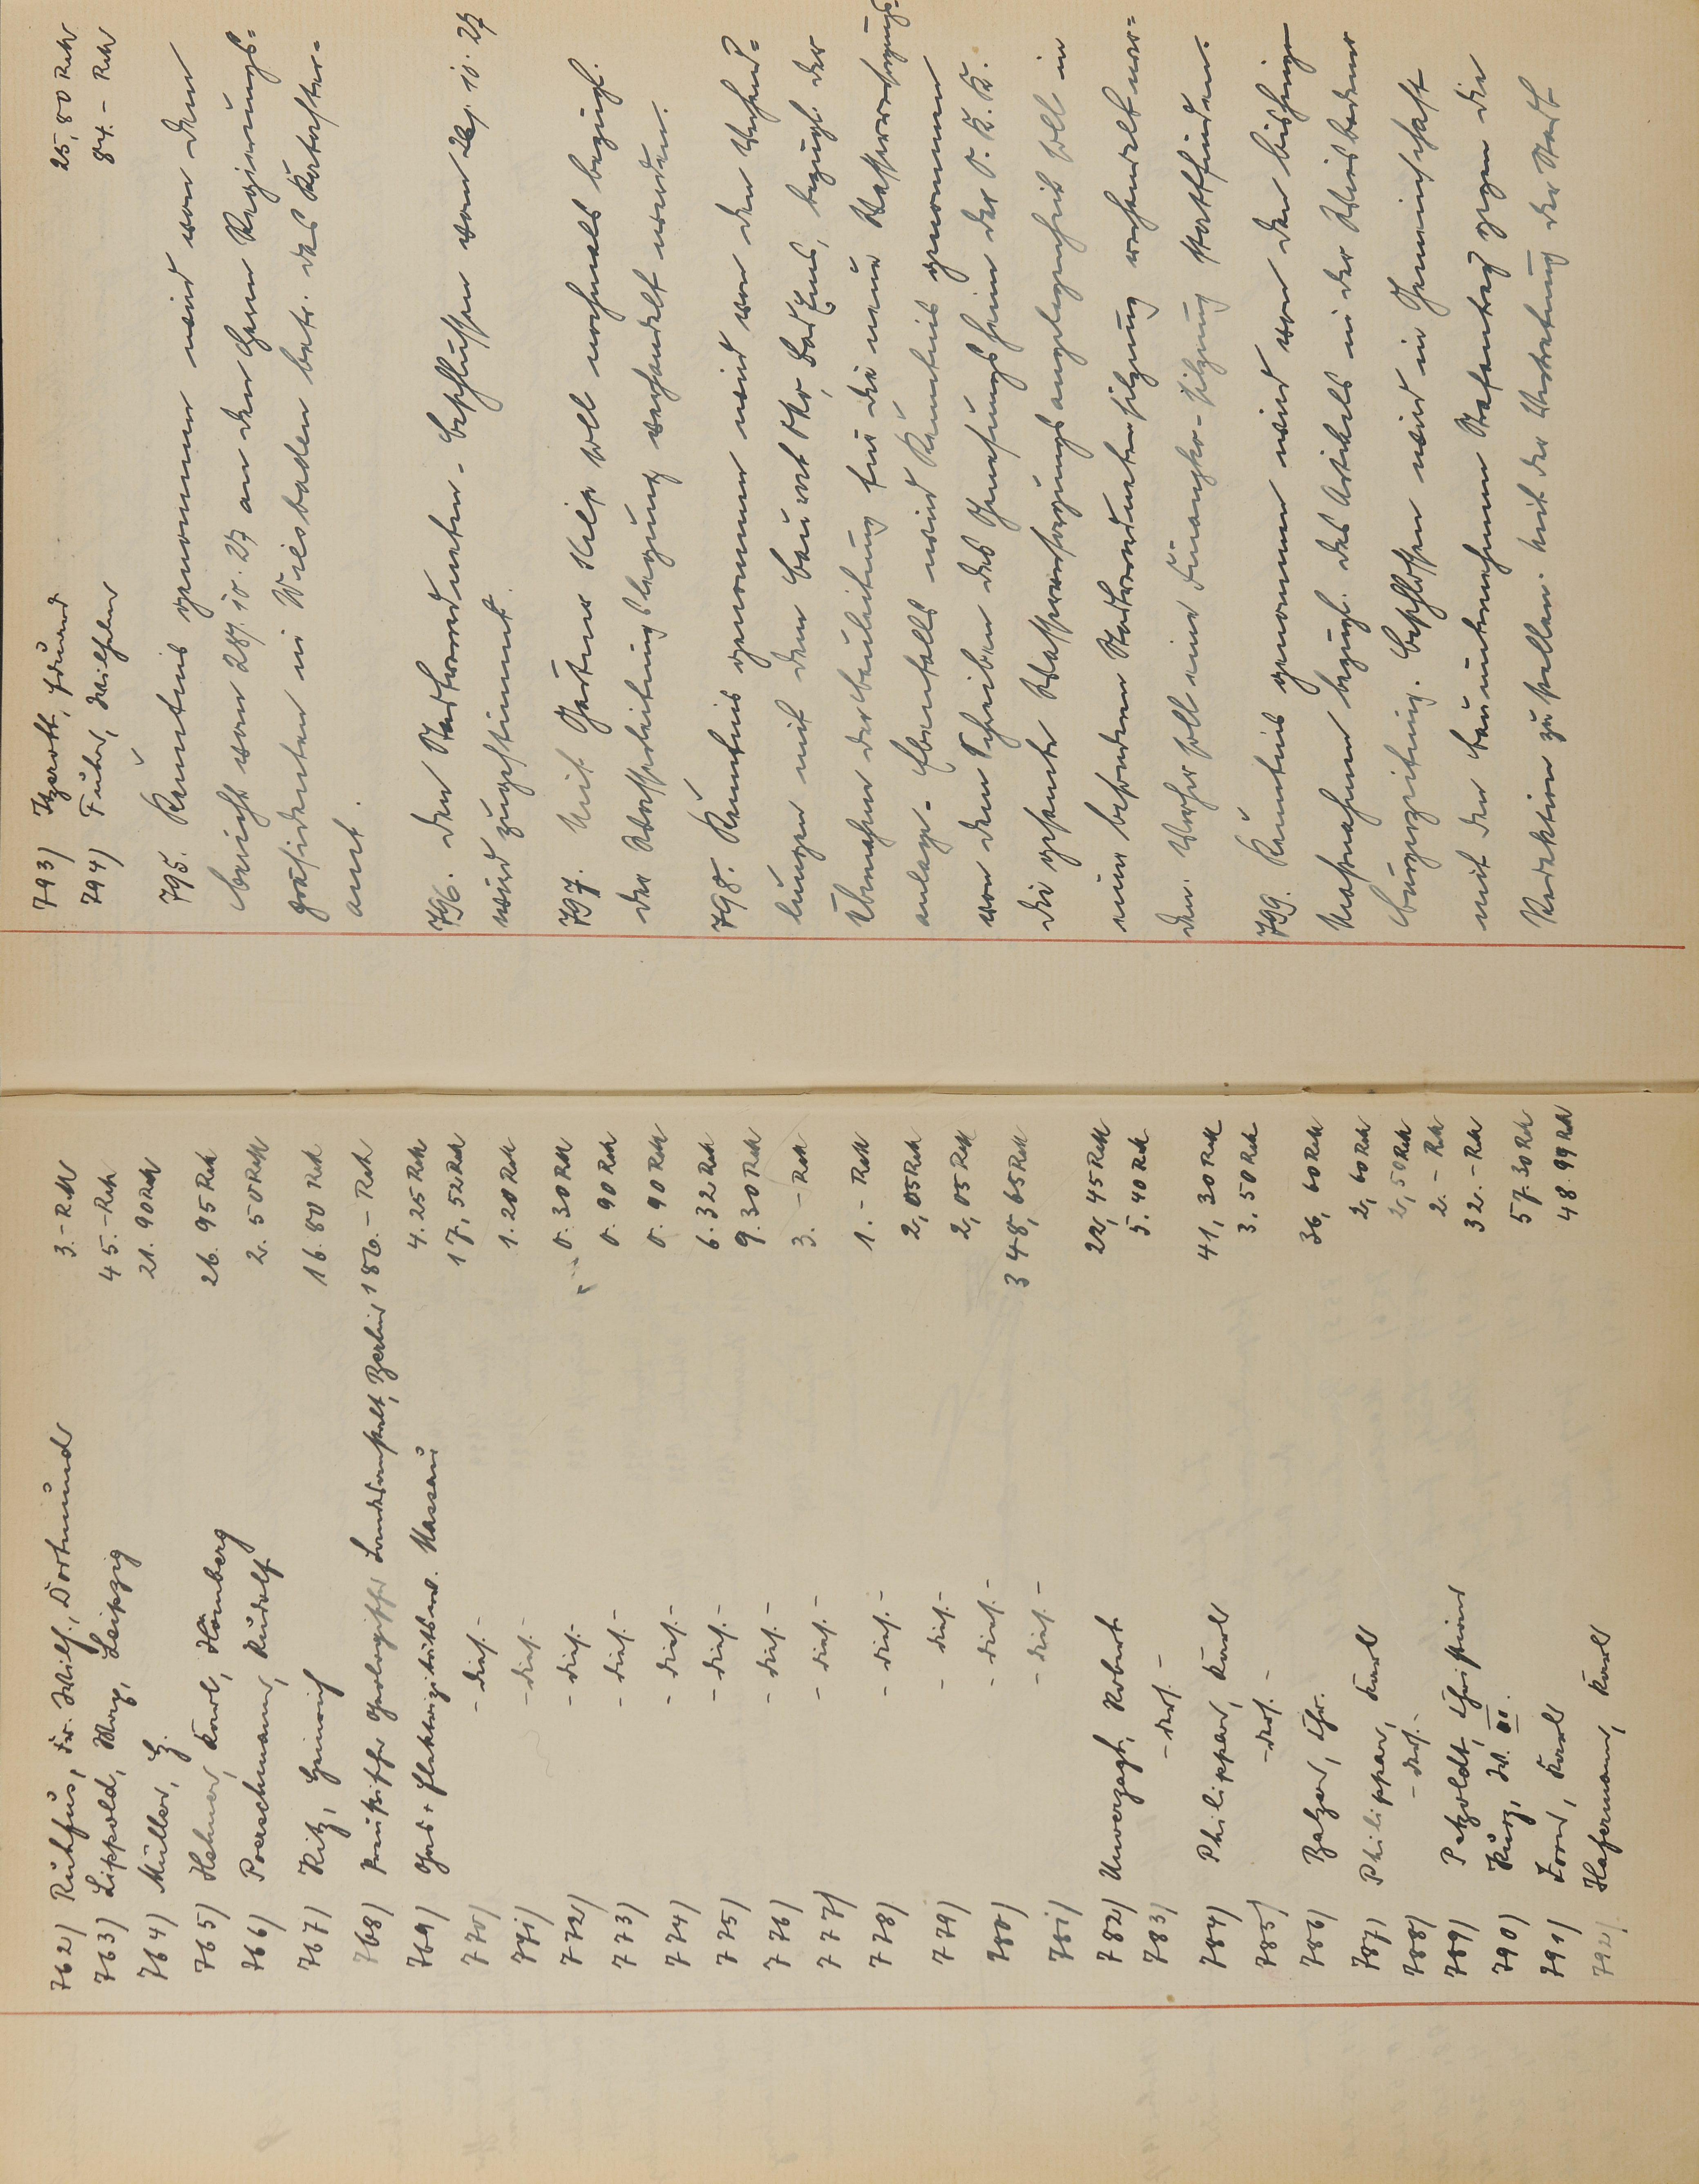 762) Ruhfus, Fr. Wilh., Dortmund 3.- RM
763) Lippold, Max, Leipzig 45.- RM
764) Müller, H. 21.90 RM
765) Hehner, Karl, Homberg 26.95 RM
766) Poerschmann, Rudolf 2.50 RM
767) Ritz, Heinrich 16.80 RM
768) Preußische Geologische Landesanstalt, Berlin 180.- RM
769) Gas + Elektrizitätsw. Nassau 4.25 RM
770) - dies. - 17,52 RM
771) - dies. - 1.20 RM
772) - dies. - 0.30 RM
773) - dies. - 0.90 RM
774) - dies. - 0.90 RM
775) - dies. - 6.32 RM
776) - dies. - 9.30 RM
777) - dies. - 3.- RM
778) - dies. - 1.- RM
779) - dies. - 2,05 RM
780) - dies. - 2,05 RM
781) - dies. - 348,65 RM
782) Unverzagt, Robert 22,45 RM
783) - ders. - 5.40 RM
784) Philippar, Karl 41,30 RM
785) - ders. - 3.50 RM
786) Balzer, Chr. 36,60 RM
787) Philippar, Karl 2,60 RM
788) - ders. - 2,50 RM
789) Petzoldt, Christian 2.- RM
790) Kurz, W. III. 32.- RM
791) Zorn, Karl 57.30 RM
792) Hafermann, Karl 48.99 RM
793) Izerott, Freund 25,80 RM
794) Fuhr, Wilhelm 84.- RM
795. Kenntnis genommen wird von dem
bericht vom 28/.10.27 an den Herrn Regierungs=
präsidenten in Wiesbaden betr. das Kataster=
amt.
796. Den Stadtverordneten-Beschlüssen vom 20/.10.27
wird zugestimmt.
797. Mit Gärtner Kilp soll nochmals bezügl.
der Wasserleitungslegung verhandelt werden.
798. Kenntnis genommen wird von den Verhand=
lungen mit dem Baurat Bad Ems, bezügl. der
Übernahme der Bauleitung für die neue Wasserversorgungs-
anlage. Ebenfalls wird Kenntnis genommen
von dem Schreiben des Genesungsheim der O.K.K.
Die gesamte Wasserversorgungsangelegenheit soll in
einer besonderen Stadtverordnetensitzung verhandelt wer=
den. Vorher soll eine Finanzko-Sitzung stattfinden.
799. Kenntnis genommen wird von den bisherigen
Massnahmen bezügl. des Artikels in der Wiesbadener
Bürgerzeitung. Beschlossen wird in Gemeinschaft
mit dem Bauunternehmer Strafantrag gegen die
Redaktion zu stellen. Mit der Vertretung der Stadt